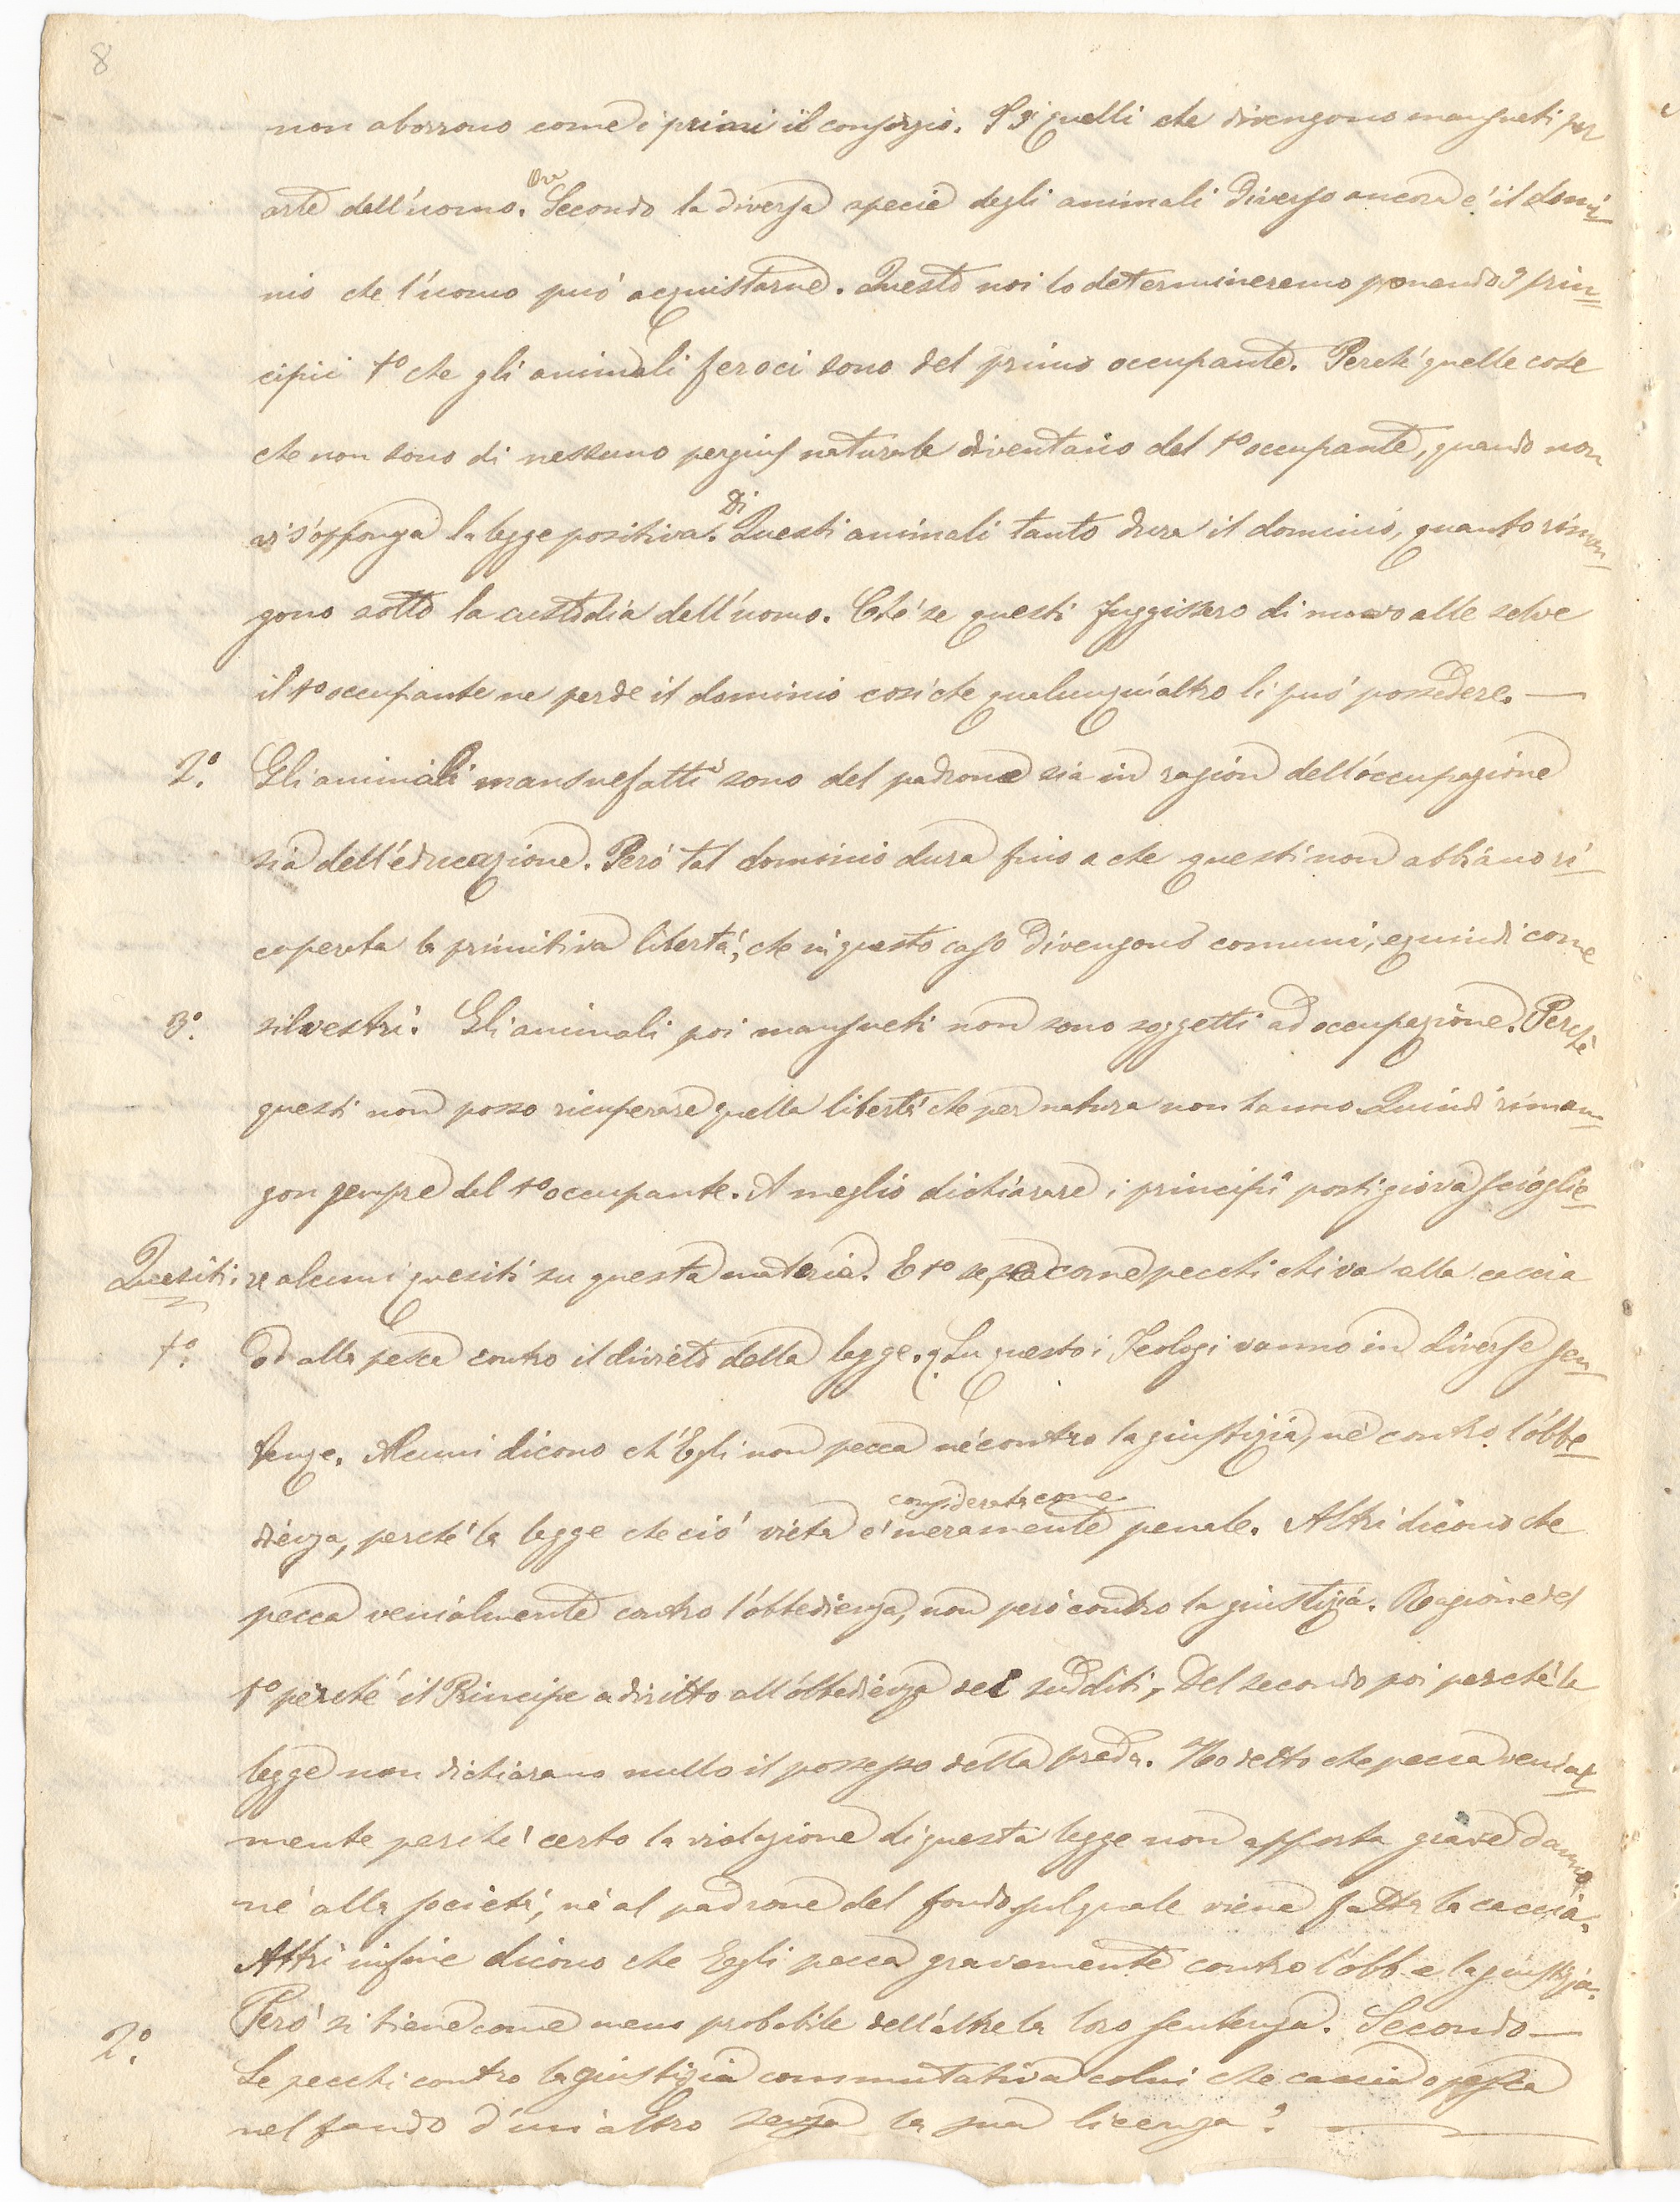 8
non aborrono come i primi il consorzio. I 3i quelli che divengono mansueti per
arte dell'uomo. Ora Secondo la diversa specie degli animali diverso ancora e' il domi-
nio che l'uomo può acquistarne. Questo noi lo determineremo ponendo 3 prin-
cipii 1º che gli animali feroci sono del primo occupante. Perché quelle cose
che non sono di nessuno per gius naturale diventano del 1º occupante, quando non
vi s'opponga la legge positiva. Di Questi animali tanto dura il dominio, quanto riman-
gono sotto la custodia dell'uomo. Ché se questi fuggissero di nuovo alle selve
il 1º occupante ne perde il dominio così che qualunqu'altro li può possedere. —
2º. Gli animali mansuefatti sono del padrone sia in ragion dell'occupazione
sia dell'educazione. Però tal dominio dura fino a che questi non abbiano ri-
cuperata la primitiva libertà, che in questo caso divengono comuni, e quindi come
3º. silvestri. Gli animali poi mansueti non sono soggetti ad occupazione. Perché
questi non posso ricuperare quella libertà che per natura non hanno. Quindi riman-
gon sempre del 1º occupante. A meglio dichiarare i principii posti giova scioglie-
Quesiti. re alcuni quesiti su questa materia. E 1º se, e come pecchi chi va alla caccia
1º. od alla pesca contro il divieto della legge. Su questo i Teologi vanno in diverse sen-
tenze. Alcuni dicono ch'Egli non pecca né contro la giustizia, né contro l'obbe-
dienza, perché la legge che ciò vieta e' considerata come meramente penale. Altri dicono che
pecca venialmente contro l'obbedienza, non però contro la giustizia. Ragione del
1º perché il Principe a diritto all'obbedienza dei sudditi, Del secondo poi perché la
legge non dichiarano nullo il possesso della preda. Ho detto che pecca venial-
mente perché certo la violazione di questa legge non apporta grave danno
né alla società, né al padrone del fondo sul quale viene fatta la caccia.
Altri infine dicono che Egli pecca gravemente contro l'obb e la giustizia.
Però si tiene come meno probabile dell'altre la loro sentenza. Secondo —
2º. Se pecchi contro la giustizia commutativa colui che caccia o pesca
nel fondo d'un'altro senza la sua licenza? —